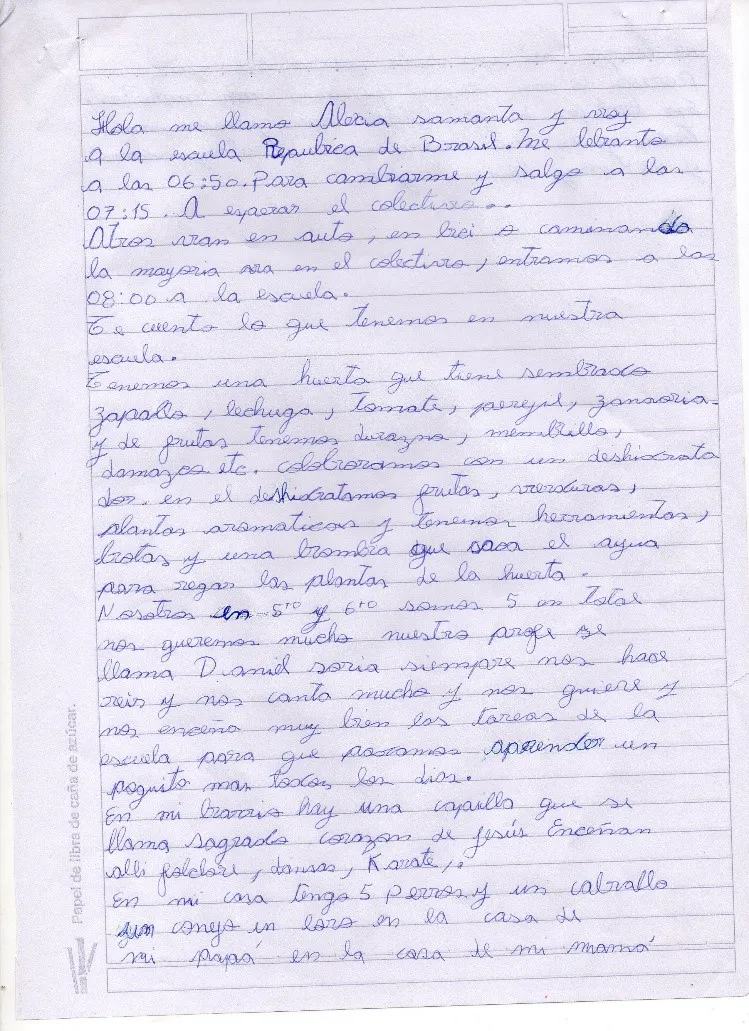 Hola me llamo Alexia samanta y voy
a la escuela Repubrica de Brasil. Me lebranto
a las 06:50. Para cambiarme y salgo a las
07:15. A esperar el colectivo..
Otros van en auto, en bici o caminando
la mayoria va en el colectivo, entramos a las
08:00 a la escuela.
Te cuento lo que tenemos en nuestra
escuela.
Tenemos una huerta que tiene sembrado
zapallo, lechuga, tomate, perejil, zanaoria
y de frutas tenemos durazno, membrillo,
damazcos etc. colobroramos con un deshidrata
dor. en el deshidratamos frutas, verduras,
plantas aromaticas y tenemos herramientas,
botas y una bomba que saca el agua
para regar las plantas de la huerta.
Nosotros en 5to y 6to somos 5 en total
nos queremos mucho nuestro profe se
llama Daniel soria siempre nos hace
reir y nos canta mucho y nos quiere y
nos enceña muy bien las tareas de la
escuela para que podamos aprender un
poquito mas todos los dias.
En mi barrio hay una capilla que se
llama sagrado corazon de Jesús Enceñan
alli folclore, dansas, Karate,.
En mi casa tengo 5 perros y un caballo
un conejo un loro en la casa de
mi papá en la casa de mi mamá
Papel de fibra de caña de azúcar.